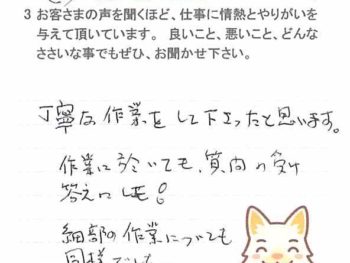 3 お客さまの声を聞くほど、仕事に情熱とやりがいを
与えて頂いています。 良いこと、悪いこと、どんな
ささいな事でもぜひ、お聞かせ下さい。
丁寧な作業をして下さったと思います。
作業に於いても、質問の受け
答えにしても!
細部の作業についても
同様でした